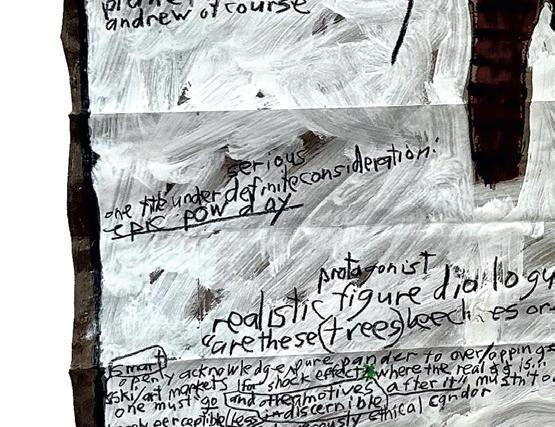 andrew of course
serious
one title under definite consideration:
epic pow day
protagonist
realistic figure dialogu
"are these (trees) beech es or
smart
openly acknowledge pure pander to overlapping
ski/art markets (for shock effect) where the real $$ is...
one must go (and other motives) after it, must
perceptible (less indiscernible)
ethical candor